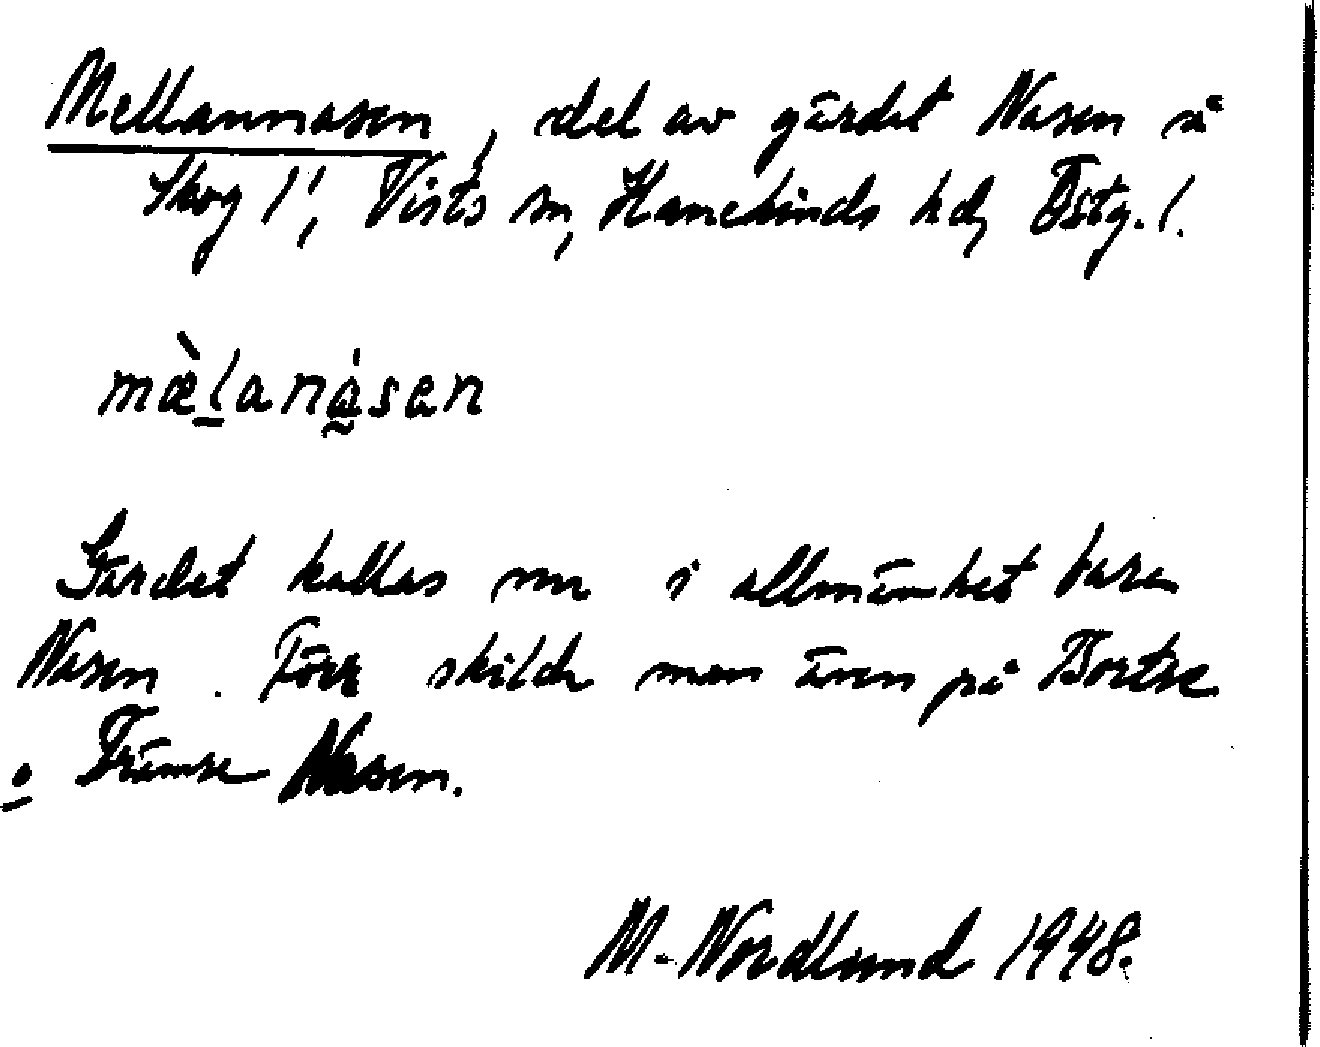 Mellannasen, del av gärdet Nasen å
Skog 1¹, Vists sn, Hanekinds hd, Östg. l.
mæ̀lanásen
Gärdet kallas nu i allmänhet bara
Nasen. Förr skilde man även på Bortre
o Främre Nasen.
M. Nordlund 1948.